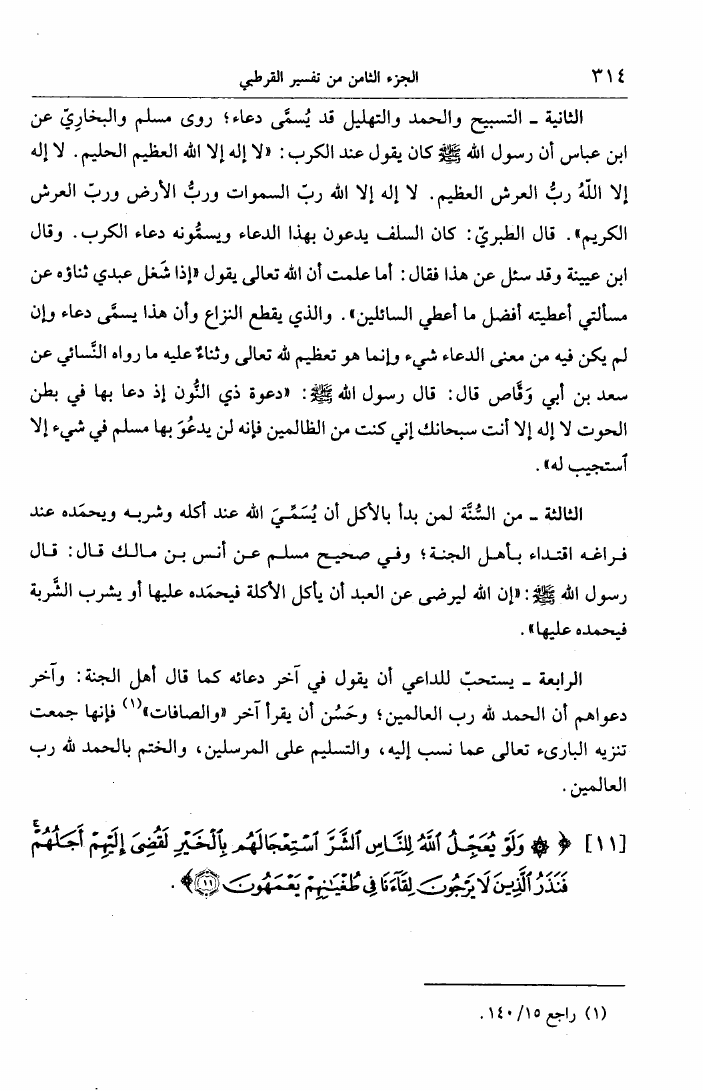 ٣١٤ الجزء الثامن من تفسير القرطبي
الثانية ـ التسبيح والحمد والتهليل قد يُسمَّى دعاء؛ روى مسلم والبخاريّ عن
ابن عباس أن رسول الله ﷺ كان يقول عند الكرب: «لا إله إلا الله العظيم الحليم. لا إله
إلا اللَّهُ ربُّ العرش العظيم. لا إله إلا الله ربّ السموات وربُّ الأرض وربّ العرش
الكريم». قال الطبريّ: كان السلف يدعون بهذا الدعاء ويسمُّونه دعاء الكرب. وقال
ابن عيينة وقد سئل عن هذا فقال: أما علمت أن الله تعالى يقول «إذا شَغل عبدي ثناؤه عن
مسألتي أعطيته أفضل ما أعطي السائلين». والذي يقطع النزاع وأن هذا يسمَّى دعاء وإن
لم يكن فيه من معنى الدعاء شيء وإنما هو تعظيم لله تعالى وثناءٌ عليه ما رواه النَّسائي عن
سعد بن أبي وَقَّاص قال: قال رسول الله ﷺ: «دعوة ذي النُّون إذ دعا بها في بطن
الحوت لا إله إلا أنت سبحانك إني كنت من الظالمين فإنه لن يدعُوَ بها مسلم في شيء إلا
ٱستجيب له».
الثالثة ـ من السُّنَّة لمن بدأ بالأكل أن يُسَمِّيَ الله عند أكله وشربه ويحمَده عند
فراغه اقتداء بأهل الجنة؛ وفي صحيح مسلم عن أنس بن مالك قال: قال
رسول الله ﷺ: «إن الله ليرضى عن العبد أن يأكل الأكلة فيحمَده عليها أو يشرب الشَّربة
فيحمده عليها».
الرابعة ـ يستحبّ للداعي أن يقول في آخر دعائه كما قال أهل الجنة: وآخر
دعواهم أن الحمد لله رب العالمين؛ وحَسُن أن يقرأ آخر «والصافات»(١) فإنها جمعت
تنزيه البارىء تعالى عما نسب إليه، والتسليم على المرسلين، والختم بالحمد لله رب
العالمين.
[١١] ﴿ ۞ وَلَوْ يُعَجِّلُ ٱللَّهُ لِلنَّاسِ ٱلشَّرَّ ٱسْتِعْجَالَهُم بِٱلْخَيْرِ لَقُضِىَ إِلَيْهِمْ أَجَلُهُمْ ۖ
فَنَذَرُ ٱلَّذِينَ لَا يَرْجُونَ لِقَآءَنَا فِى طُغْيَـٰنِهِمْ يَعْمَهُونَ ۝١١﴾.
(١) راجع ١٤٠/١٥.